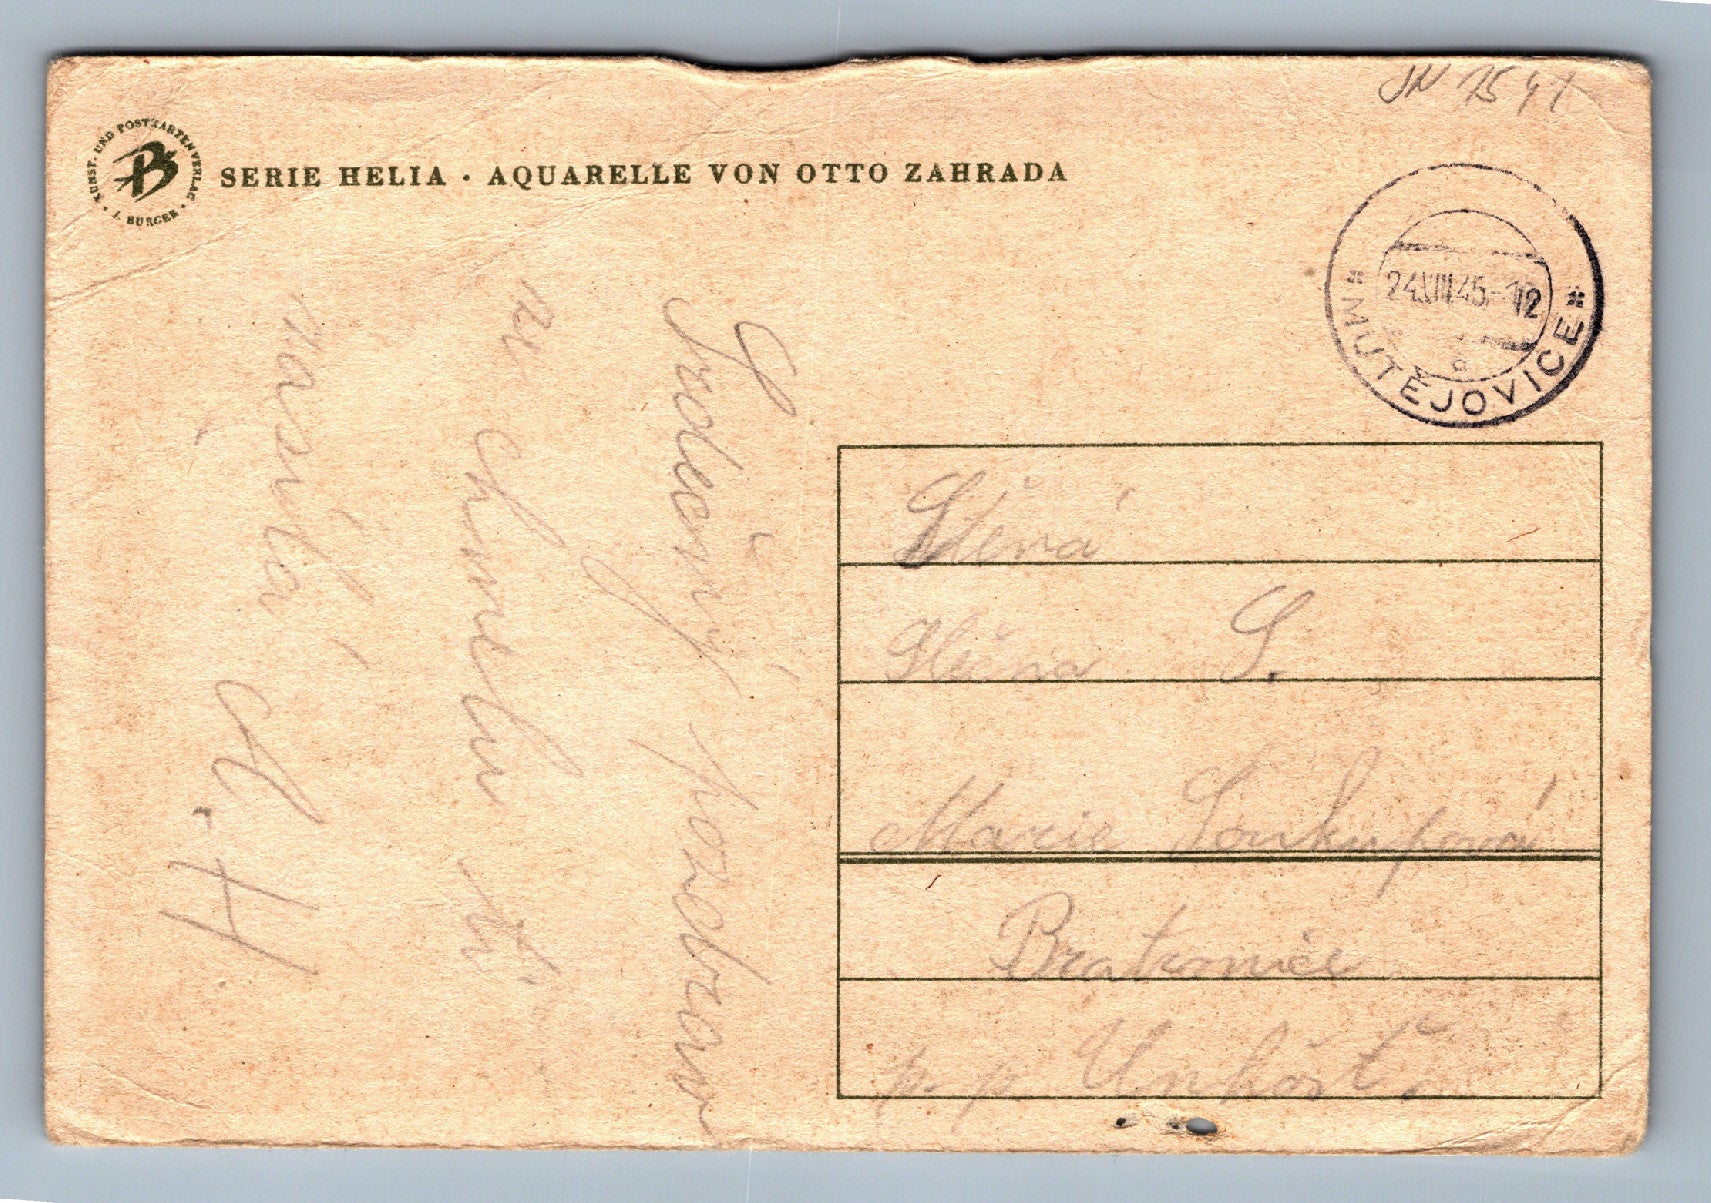 JN 1541
KUNST- UND POSTKARTENVERLAG · J. BURGER ·
B
SERIE HELIA · AQUARELLE VON OTTO ZAHRADA
24.VIII.45.-12
* MUTĚJOVICE *
6
Srdečný pozdrav
se chmelu ti
posílá A. H.
Slečna S.
Marie Soukupová
Bratronice
p. p. Unhošť.